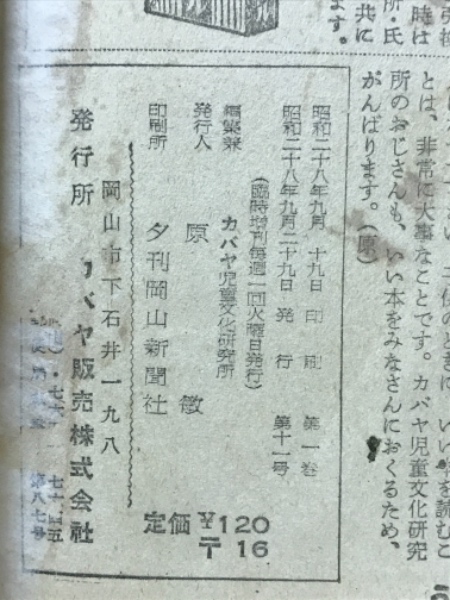 時は
所・氏
共に
ます。
とは、非常に大事なことです。カバヤ児童文化研究
所のおじさんも、いい本をみなさんにおくるため、
がんばります。(原)
昭和二十八年九月 十九日 印刷 第一巻
昭和二十八年九月二十九日 発行 第十一号
(臨時増刊毎週一回火曜日発行)
編集兼 カバヤ児童文化研究所
発行人 原 敏
印刷所 夕刊岡山新聞社
岡山市下石井一九八
発行所 カバヤ販売株式会社
定価 ¥120
〒 16
第八七号